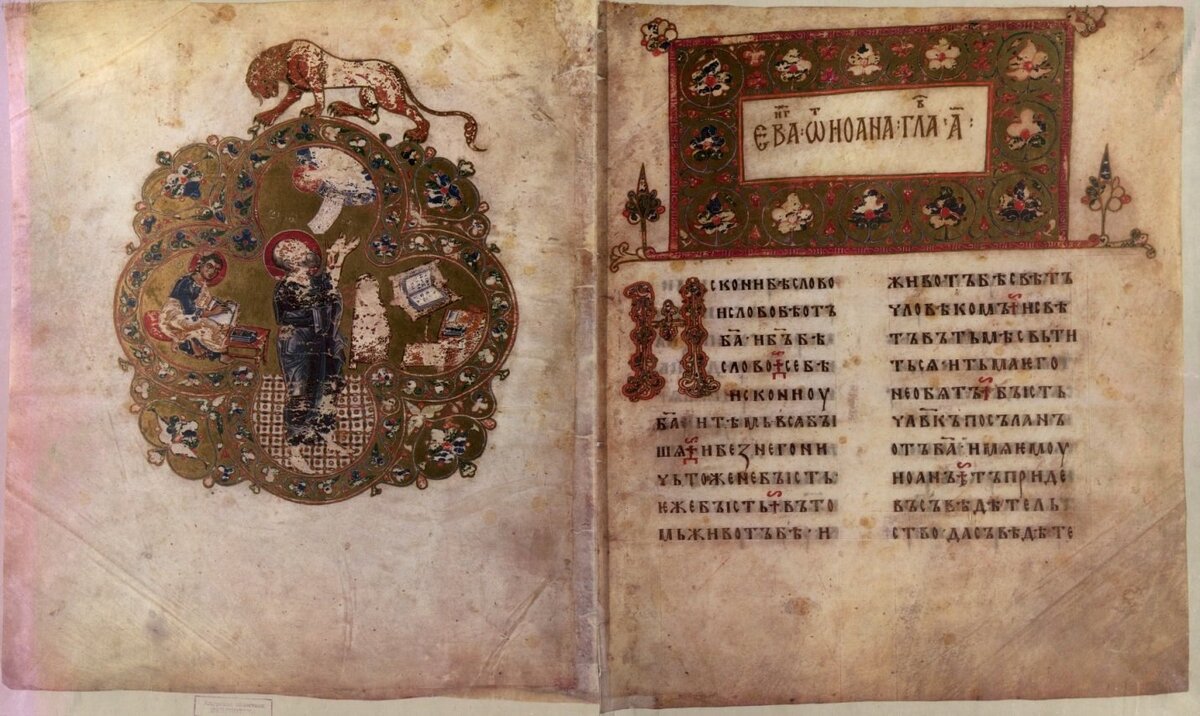 ЄВАⷩ҇Гⷢ·Ѿ ИОАНА·ГЛАⷡ·А҃:
ИСКОНИ БѢ СЛОВО
И СЛОВО БѢ ОТЪ
Б҃А· И Б҃Ъ БѢ
СЛОВО· СЕ БѢ
ИСКОНИ ОУ
Б҃А· И ТѢМЬ ВЬСА БЫ
ШѦ· И БЕЗ НЕГО НИ
ЧЬТОЖЕ НЕ БЫСТЬ·
ѤЖЕ БЫСТЬ· ВЪ ТО
МЬ ЖИВОТЪ БѢ· И
ЖИВОТЪ БѢ СВѢТЪ
ЧЛОВѢКОМЪ· И СВѢ
ТЪ ВЪ ТЬМѢ СВЬТИ
ТЬСѦ· И ТЬМА ѤГО
НЕ ОБѦТЪ· БЫСТЬ
ЧЛ҃ВКЪ ПОСЪЛАНЪ
ОТЪ Б҃А· ИМѦ ѤМОУ
ИОАНЪ· ТЪ ПРИДЕ
ВЪ СЪВѢДѢТЕЛЬ
СТВО· ДА СЪВѢДѢТЕ